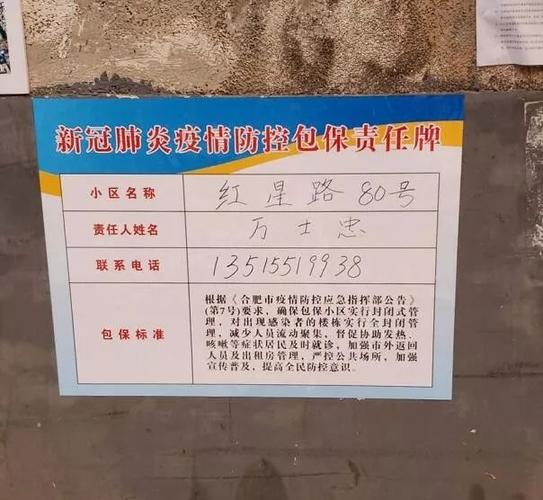 新冠肺炎疫情防控包保责任牌
小区名称 红星路80号
责任人姓名 万士忠
联系电话 13515519938
包保标准
根据《合肥市疫情防控应急指挥部公告》
(第7号)要求，确保包保小区实行封闭式管
理，对出现感染者的楼栋实行全封闭管
理，减少人员流动聚集，督促协助发热、
咳嗽等症状居民及时就诊，加强市外返回
人员及出租房管理，严控公共场所，加强
宣传普及，提高全民防控意识。